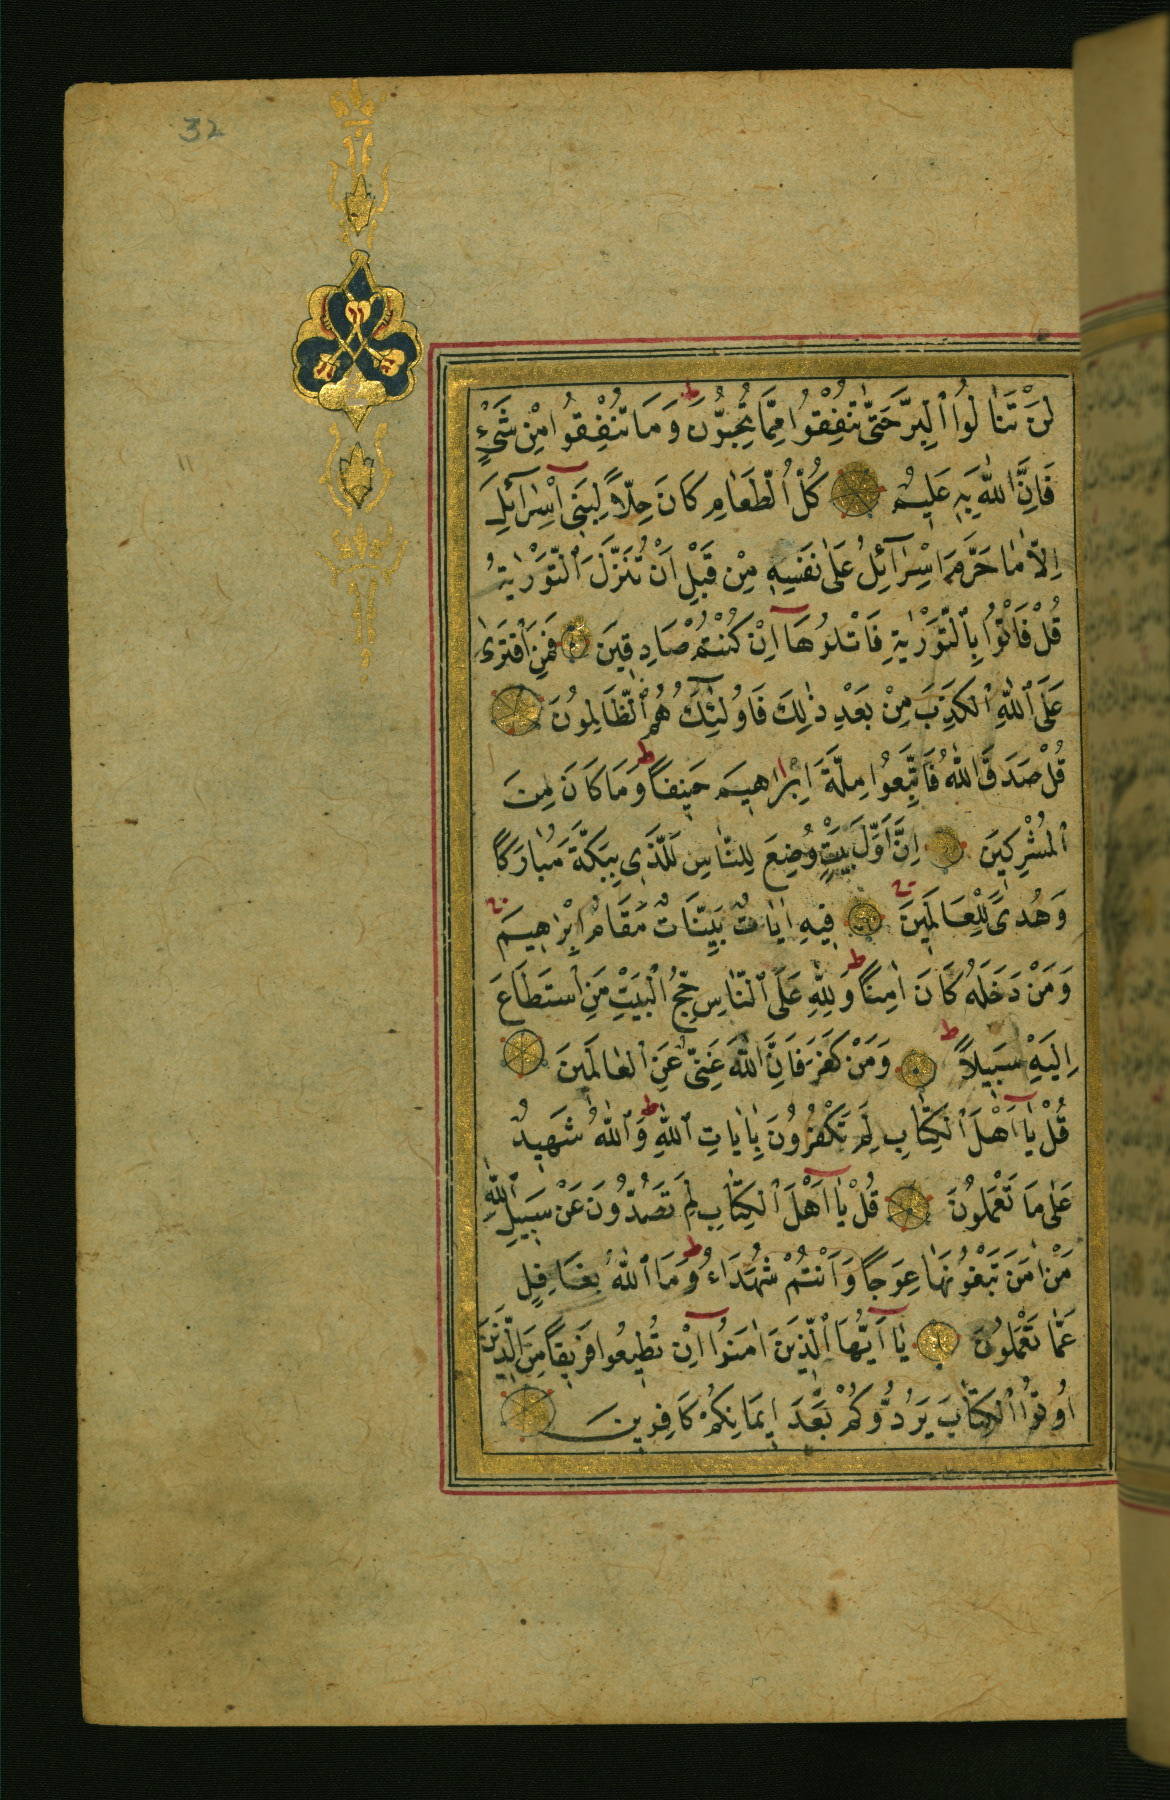 32
لَنْ تَنَالُوا ٱلْبِرَّ حَتّٰى تُنْفِقُوا مِمَّا تُحِبُّونَ ط وَمَا تُنْفِقُوا مِنْ شَيْءٍ
فَاِنَّ ٱللّٰهَ بِهٖ عَلِيمٌ كُلُّ ٱلطَّعَامِ كَانَ حِلًّا لِبَنٖى اِسْرَآئِلَ
اِلَّا مَا حَرَّمَ اِسْرَآئِلُ عَلٰى نَفْسِهٖ مِنْ قَبْلِ اَنْ تُنَزَّلَ ٱلتَّوْرٰيةُ
قُلْ فَاْتُوا بِٱلتَّوْرٰيةِ فَاتْلُوهَآ اِنْ كُنْتُمْ صَادِقِينَ فَمَنِ ٱفْتَرٰى
عَلَى ٱللّٰهِ ٱلْكَذِبَ مِنْ بَعْدِ ذٰلِكَ فَاُولٰٓئِكَ هُمُ ٱلظَّالِمُونَ
قُلْ صَدَقَ ٱللّٰهُ فَاتَّبِعُوا مِلَّةَ اِبْرٰاهِيمَ حَنِيفًا ط وَمَا كَانَ مِنَ
ٱلْمُشْرِكِينَ اِنَّ اَوَّلَ بَيْتٍ وُضِعَ لِلنَّاسِ لَلَّذِى بِبَكَّةَ مُبَارَكًا
وَهُدًى لِلْعَالَمِينَ فِيهِ اٰيَاتٌ بَيِّنَاتٌ مَقَامُ اِبْرٰهِيمَ
وَمَنْ دَخَلَهُ كَانَ اٰمِنًا ط وَلِلّٰهِ عَلَى ٱلنَّاسِ حِجُّ ٱلْبَيْتِ مَنِ ٱسْتَطَاعَ
اِلَيْهِ سَبِيلًا ط وَمَنْ كَفَرَ فَاِنَّ ٱللّٰهَ غَنِىٌّ عَنِ ٱلْعَالَمِينَ
قُلْ يَآ اَهْلَ ٱلْكِتَابِ لِمَ تَكْفُرُونَ بِاٰيَاتِ ٱللّٰهِ ط وَٱللّٰهُ شَهِيدٌ
عَلٰى مَا تَعْمَلُونَ قُلْ يَآ اَهْلَ ٱلْكِتَابِ لِمَ تَصُدُّونَ عَنْ سَبِيلِ ٱللّٰهِ
مَنْ اٰمَنَ تَبْغُونَهَا عِوَجًا وَاَنْتُمْ شُهَدَاءُ ط وَمَا ٱللّٰهُ بِغَافِلٍ
عَمَّا تَعْمَلُونَ يَآ اَيُّهَا ٱلَّذِينَ اٰمَنُوآ اِنْ تُطِيعُوا فَرِيقًا مِنَ ٱلَّذِينَ
اُوتُوا ٱلْكِتَابَ يَرُدُّوكُمْ بَعْدَ اِيمَانِكُمْ كَافِرِينَ